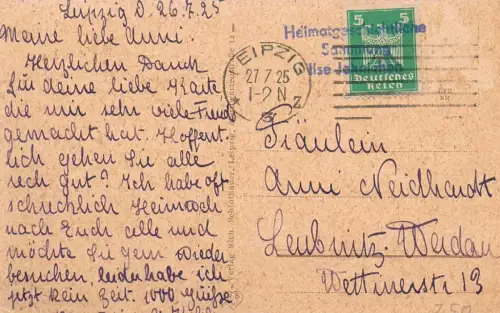 Leipzig D. 26.7.25
Meine liebe Anni.
Herzlichen Dank
für deine liebe Karte
die mir sehr viele Freud
gemacht hat. Hoffent
lich gehen Sie alle
rech gut? Ich habe oft
schrecklich Heimweh
nach Euch alle und
möchte Sie gern wieder
besuchen, leider habe ich
jetzt kein Zeit. 1000 Grüße
Verlag Rich. Schlothauer, Leipzig
LEIPZIG
27.7.25
1-2 N
Z
Heimatgeschichtliche
Sammlung
Ilse
5 5
Deutsches
Reich
Fräulein
Anni Neidhardt
Leubnitz-Werdau
Wettinerstr 13